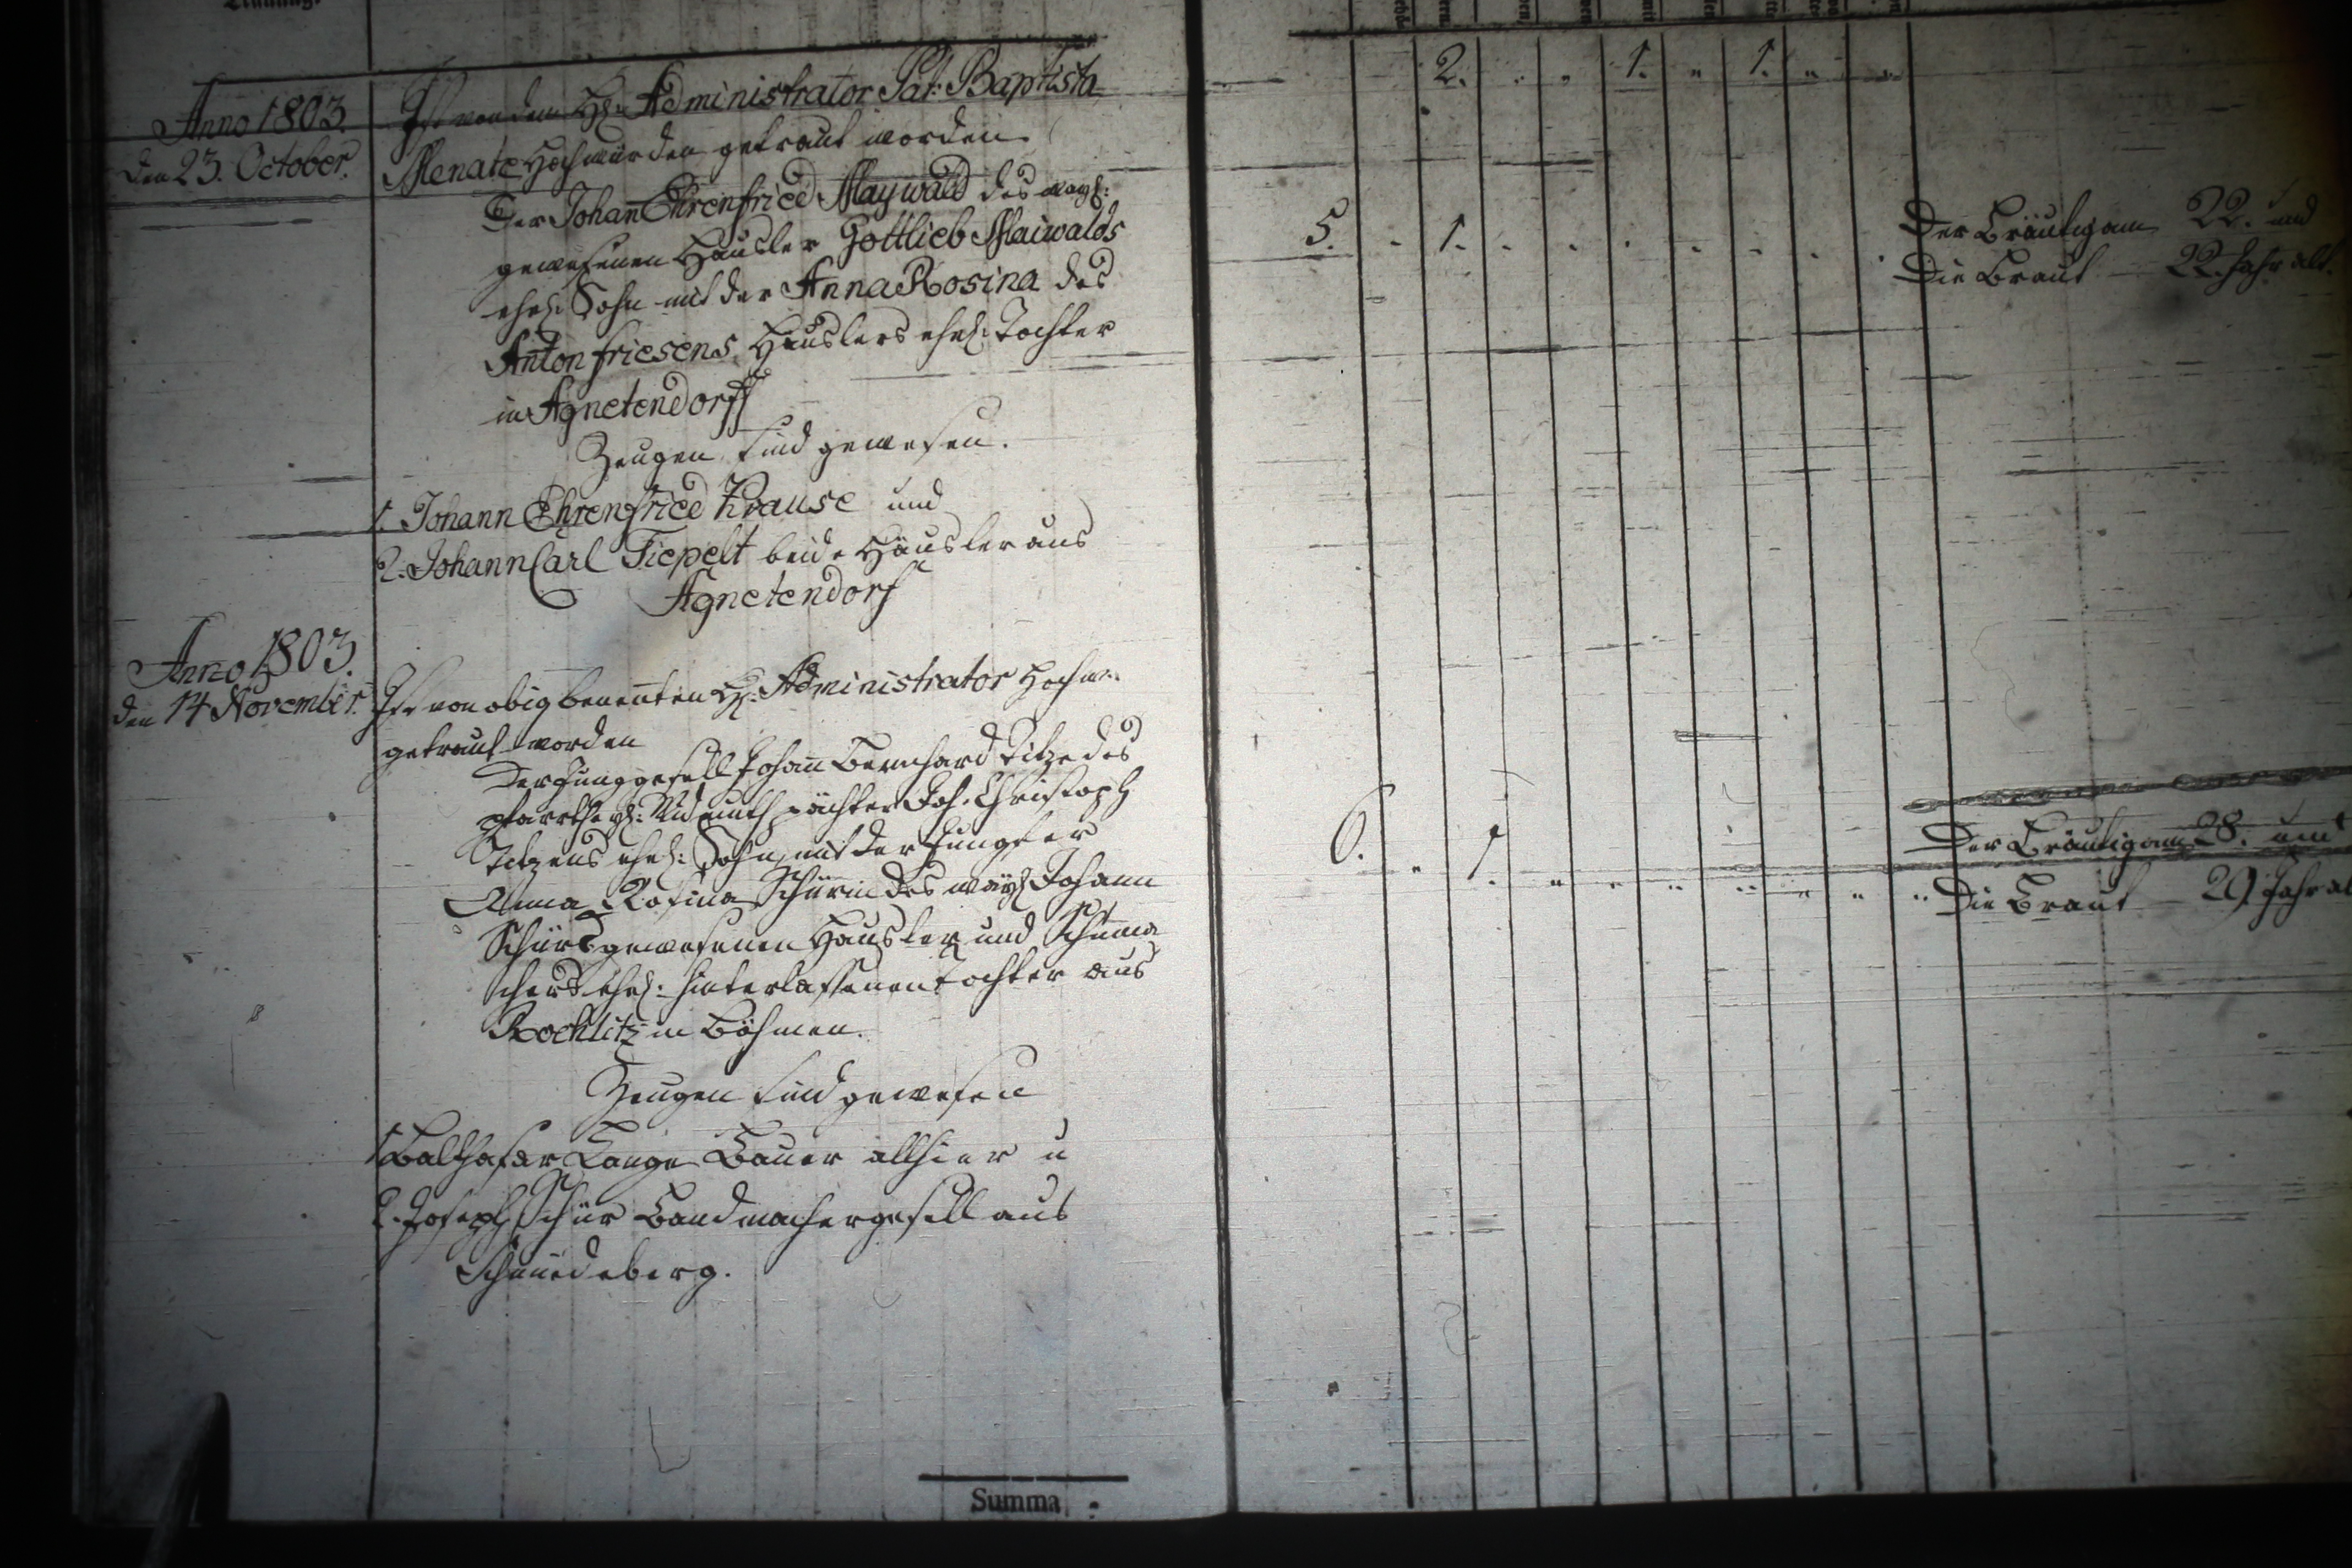 Anno 1803.
den 23. October.
Ist von dem H: Administrator Pat: Baptista
Menate Hochwürden getraut worden
Der Johan̄ Ehrenfried Maywald des wayl:
gewesenen Häusler Gottlieb Maiwalds
ehel: Sohn mit der Anna Rosina des
Anton friesens Häuslers ehel: Tochter
in Agnetendorff
Zeugen sind gewesen.
1. Johann Ehrenfried Krause und
2. Johann Carl Tiepelt beide Häusler aus
Agnetendorf
2. 1. 1.
5. 1.
Der Bräutigam 22. und
Die Braut 22. Jahr alt.
Anno 1803.
den 14 November.
Ist von obig benen̄ten H: Administrator Hochw:
getraut worden
Der Junggesell Johan̄ Bernhard Titze des
pächter Joh. Christoph
Titzens ehel: Sohn, mit der Jungfer
Anna Rosina Schürin des wayl Johann
Schürs gewesenen Häusler und Schuma
chers ehel: hinterlassenen tochter aus
Rochlitz in Böhmen.
Zeugen sind gewesen
1 Balthasar Lange Bauer allhier u
2. Joseph Schür Bandmachergesell aus
Schmiedeberg.
6. 1.
Der Bräutigam 28. und
Die Braut 29. Jahr al
Summa :